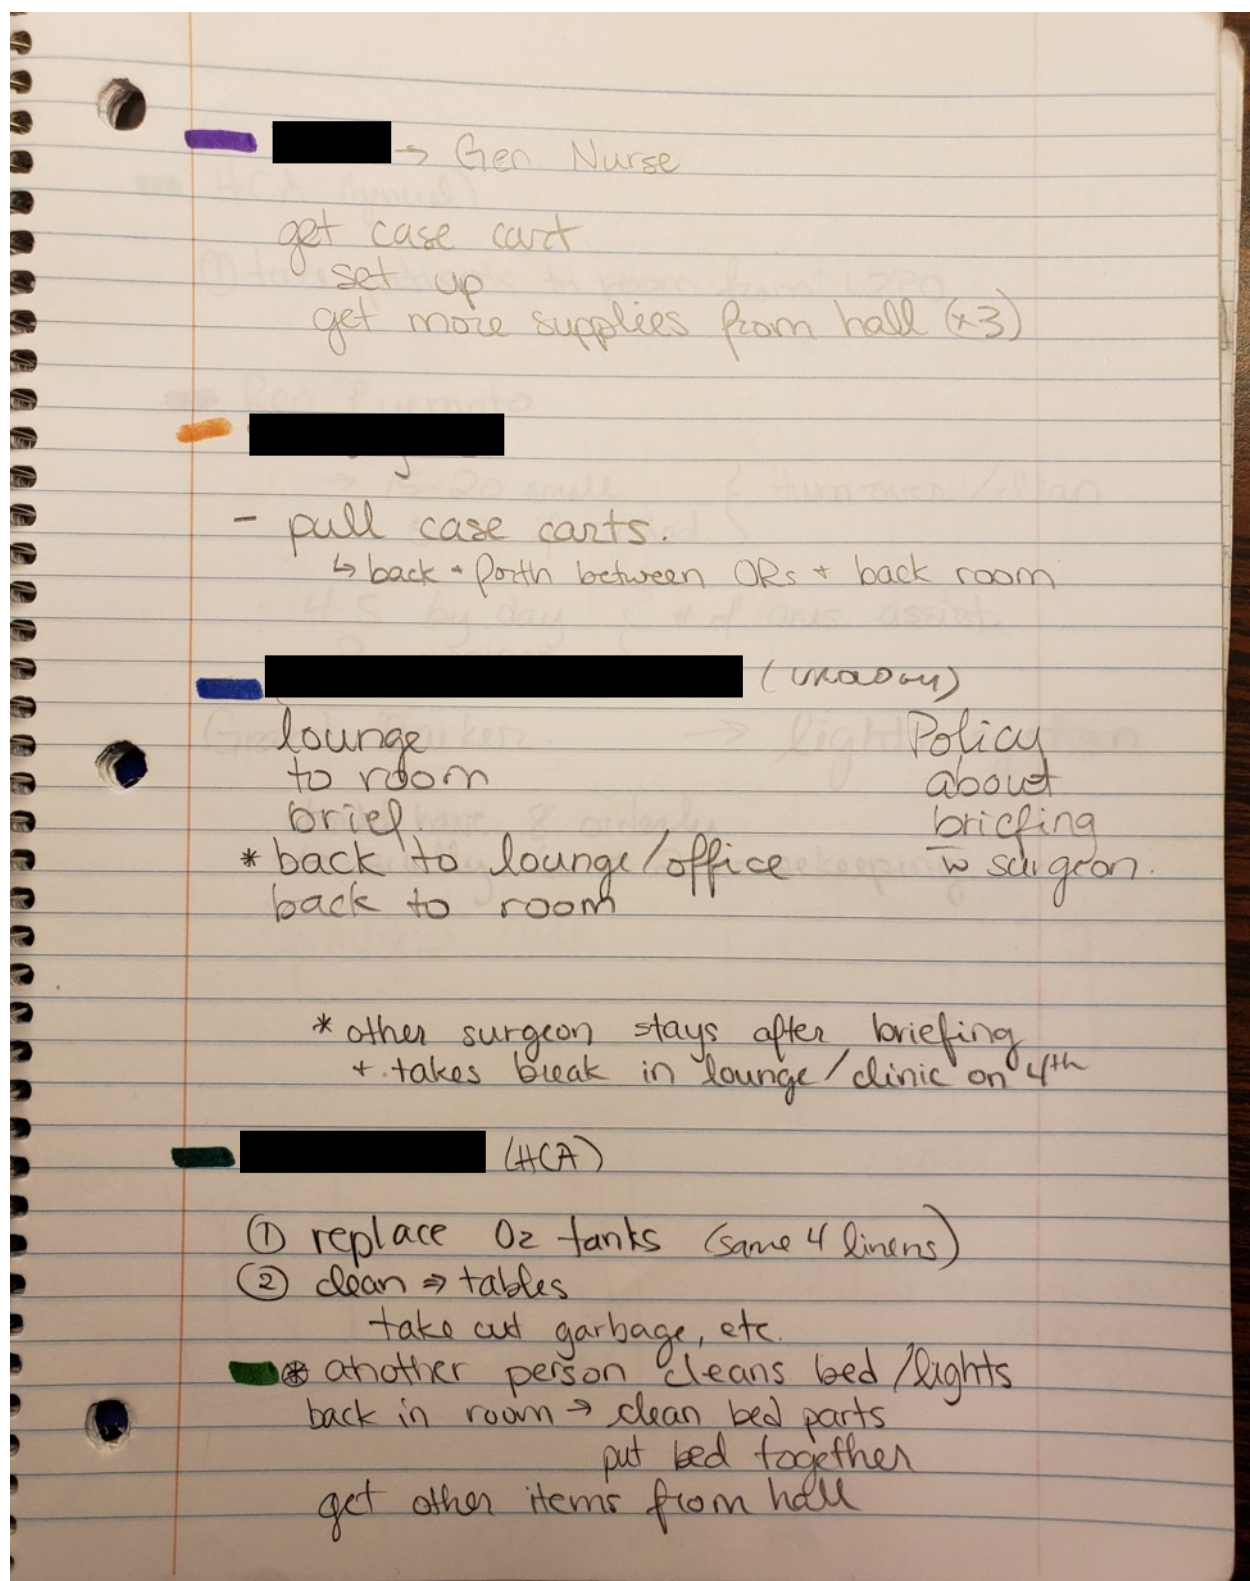 → Gen Nurse
get case cart
set up
get more supplies from hall (x3)
- pull case carts.
↳ back + forth between ORs + back room
lounge
to room
brief.
* back to lounge/office
back to room
Policy
about
briefing
w surgeon.
* other surgeon stays after briefing
+ takes break in lounge/clinic on 4th
(HCA)
① replace O2 tanks (same 4 linens)
② clean → tables
take out garbage, etc.
* another person cleans bed/lights
back in room → clean bed parts
put bed together
get other items from hall